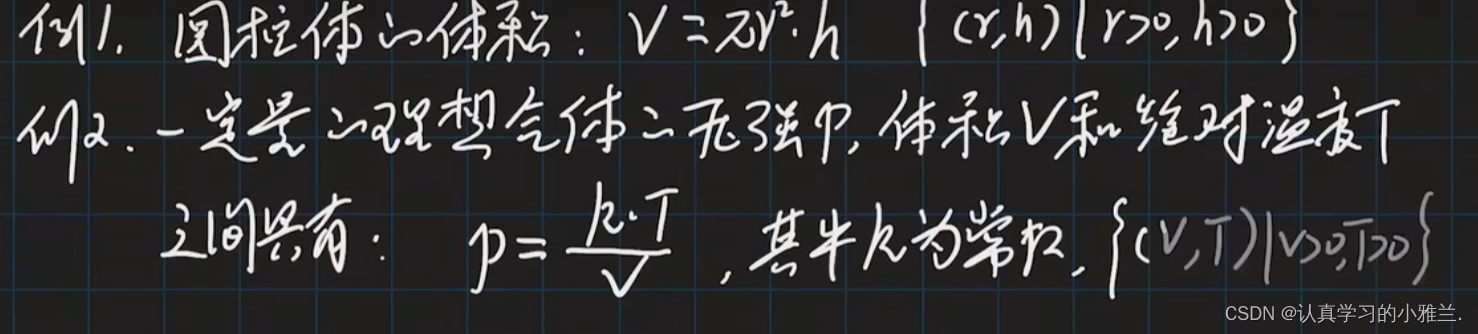 例1. 圆柱体的体积: V=πr²·h {(r,h)|r>0,h>0}
例2. 一定量的理想气体的压强p,体积V和绝对温度T
之间具有: p=\frac{k·T}{V} ,其中k为常数, {(V,T)|V>0,T>0}
CSDN @认真学习的小雅兰.